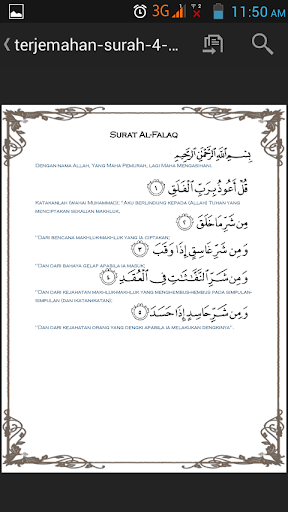 3G 11:50 AM
terjemahan-surah-4-...
SURAT AL-FALAQ
بِسْمِ اللَّهِ الرَّحْمَٰنِ الرَّحِيمِ
DENGAN NAMA ALLAH, YANG MAHA PEMURAH, LAGI MAHA MENGASIHANI.
قُلْ أَعُوذُ بِرَبِّ الْفَلَقِ ١
KATAKANLAH (WAHAI MUHAMMAD): "AKU BERLINDUNG KEPADA (ALLAH) TUHAN YANG
MENCIPTAKAN SEKALIAN MAKHLUK,
مِن شَرِّ مَا خَلَقَ ٢
"DARI BENCANA MAKHLUK-MAKHLUK YANG IA CIPTAKAN;
وَمِن شَرِّ غَاسِقٍ إِذَا وَقَبَ ٣
"DAN DARI BAHAYA GELAP APABILA IA MASUK;
وَمِن شَرِّ النَّفَّاثَاتِ فِي الْعُقَدِ ٤
"DAN DARI KEJAHATAN MAKHLUK-MAKHLUK YANG MENGHEMBUS-HEMBUS PADA SIMPULAN-
SIMPULAN (DAN IKATAN-IKATAN);
وَمِن شَرِّ حَاسِدٍ إِذَا حَسَدَ ٥
"DAN DARI KEJAHATAN ORANG YANG DENGKI APABILA IA MELAKUKAN DENGKINYA".